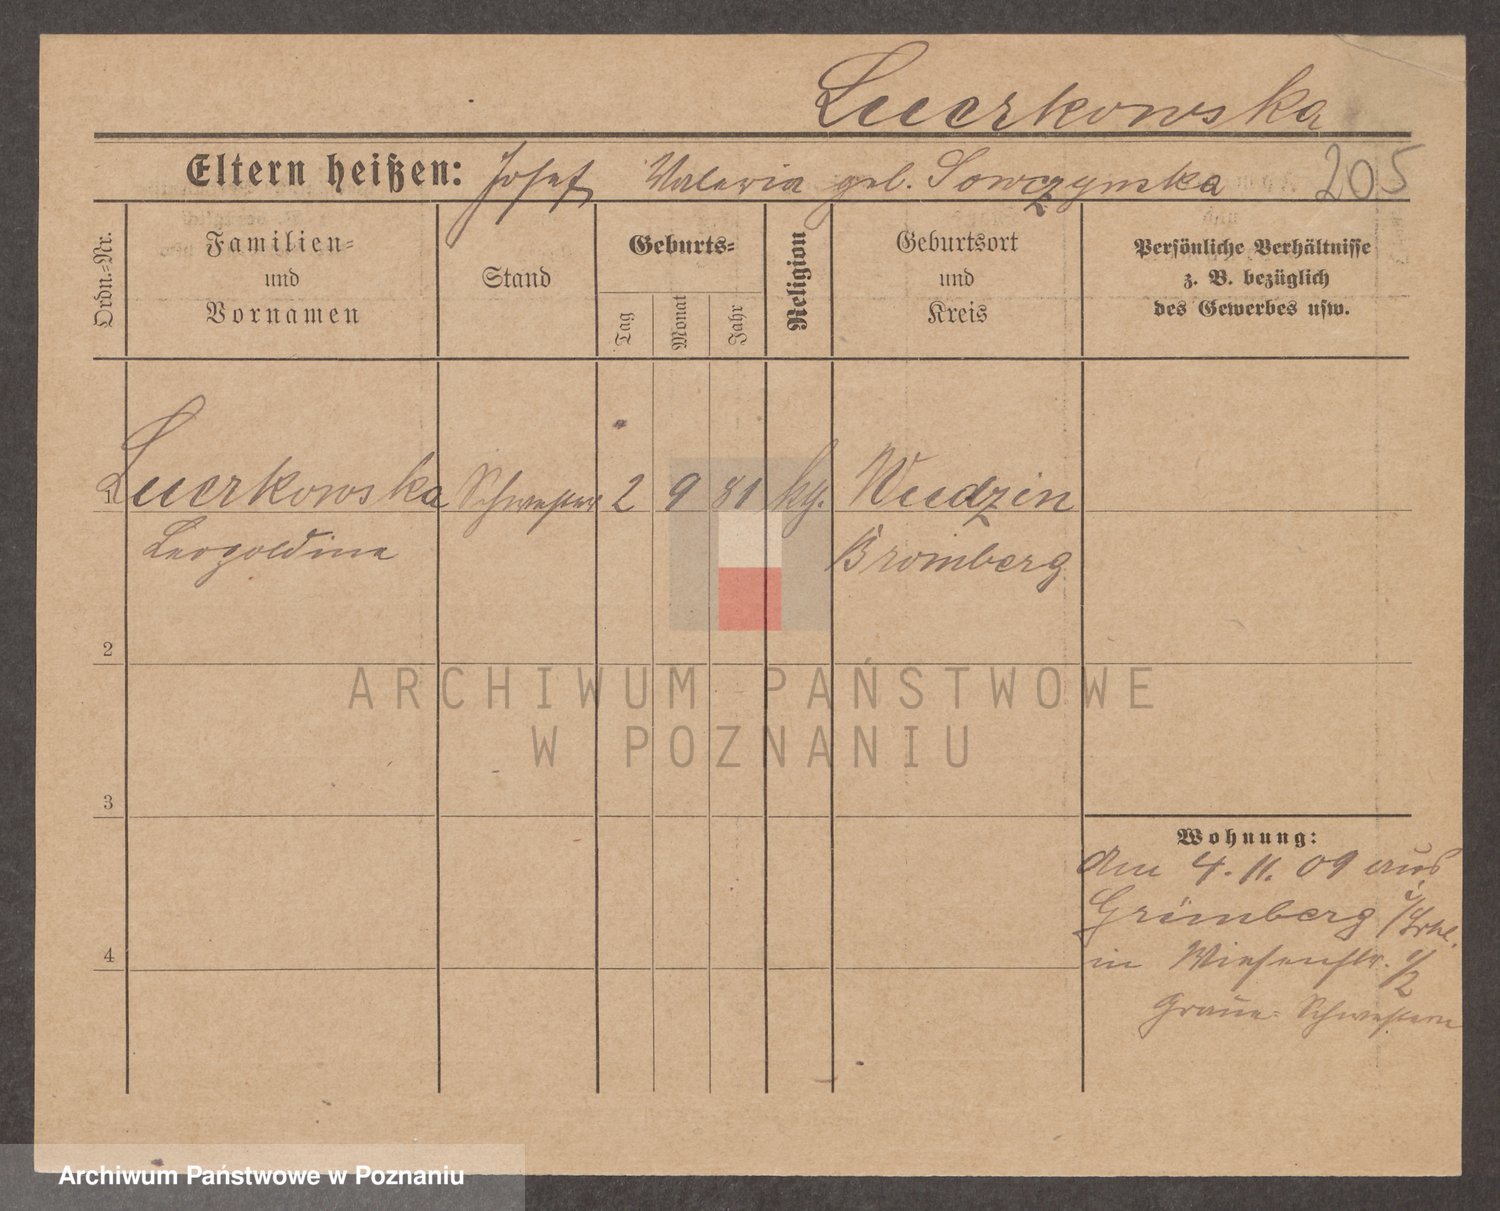 Luczkowska
Eltern heißen: Josef Valeria geb. Sowczynska 205
Ordn.-Nr.
Familien-
und
Vornamen
Stand
Geburts-
Tag
Monat
Jahr
Religion
Geburtsort
und
Kreis
Persönliche Verhältnisse
z. B. bezüglich
des Gewerbes usw.
1 Luczkowska Schwester 2 9 81 kg. Wudzin
Leopoldine Bromberg
2
3
4
Wohnung:
Am 4. 11. 09 aus
Grünberg i/Schl.
in Wiesenstr. 1/2
Graue-Schwestern
ARCHIWUM PAŃSTWOWE
W POZNANIU
Archiwum Państwowe w Poznaniu